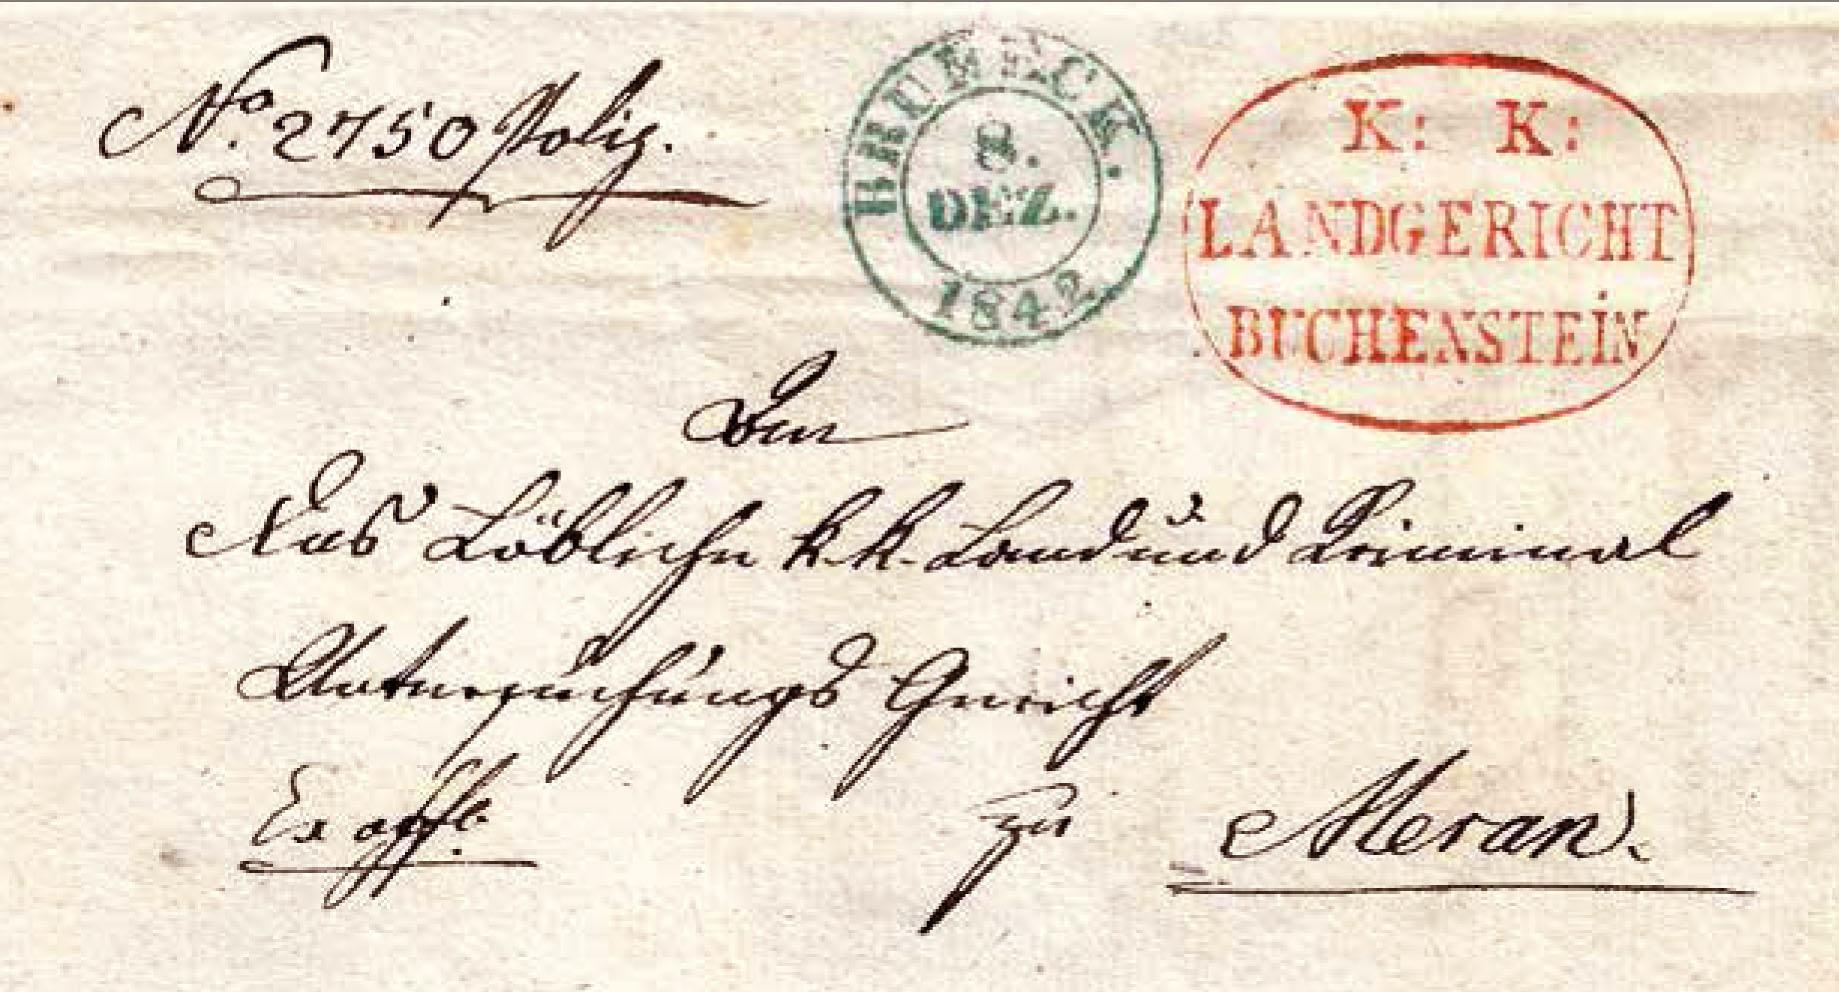 No. 2750 Poliz.
BRUNECK.
8.
DEZ.
1842
K: K:
LANDGERICHT
BUCHENSTEIN
An
Das Löbliche k.k. Land und Kriminal
Untersuchungs Gericht
Ex offo.
zu Meran.